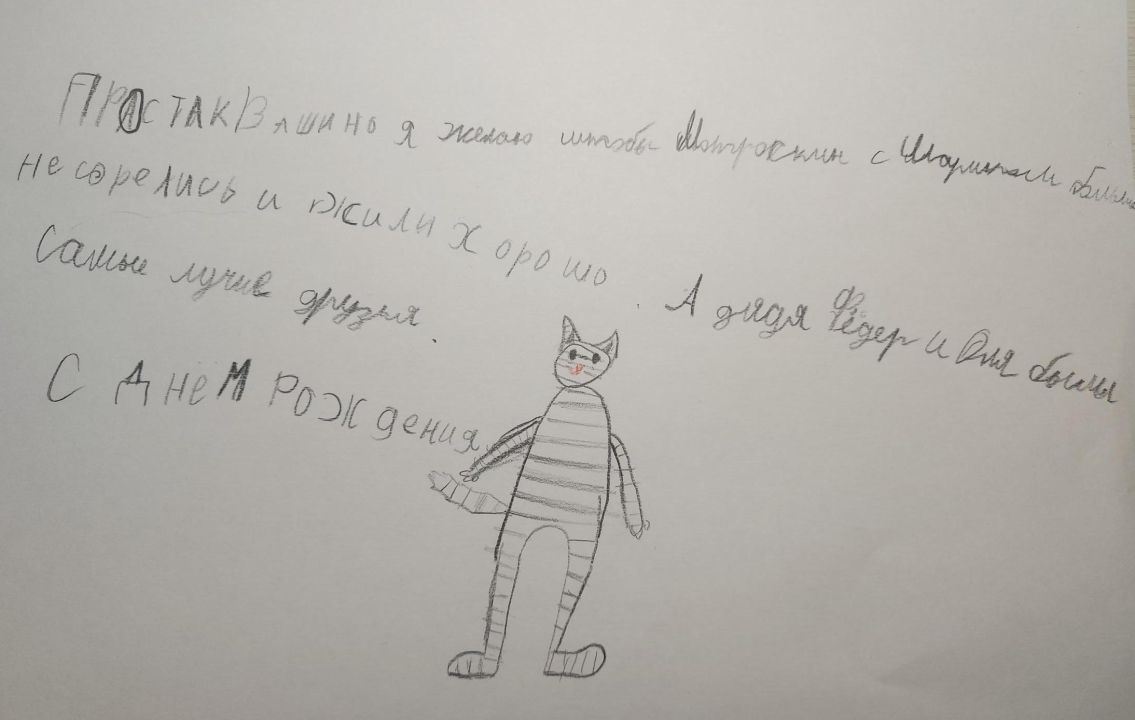 ПРОСТАКВАШИНО я желаю штобы Матроскин с Шариком больше
не сорелись и жили хорошо. А дядя Фёдер и Оля были
Самые лучие друзья.
С ДНЕМ РОЖдения